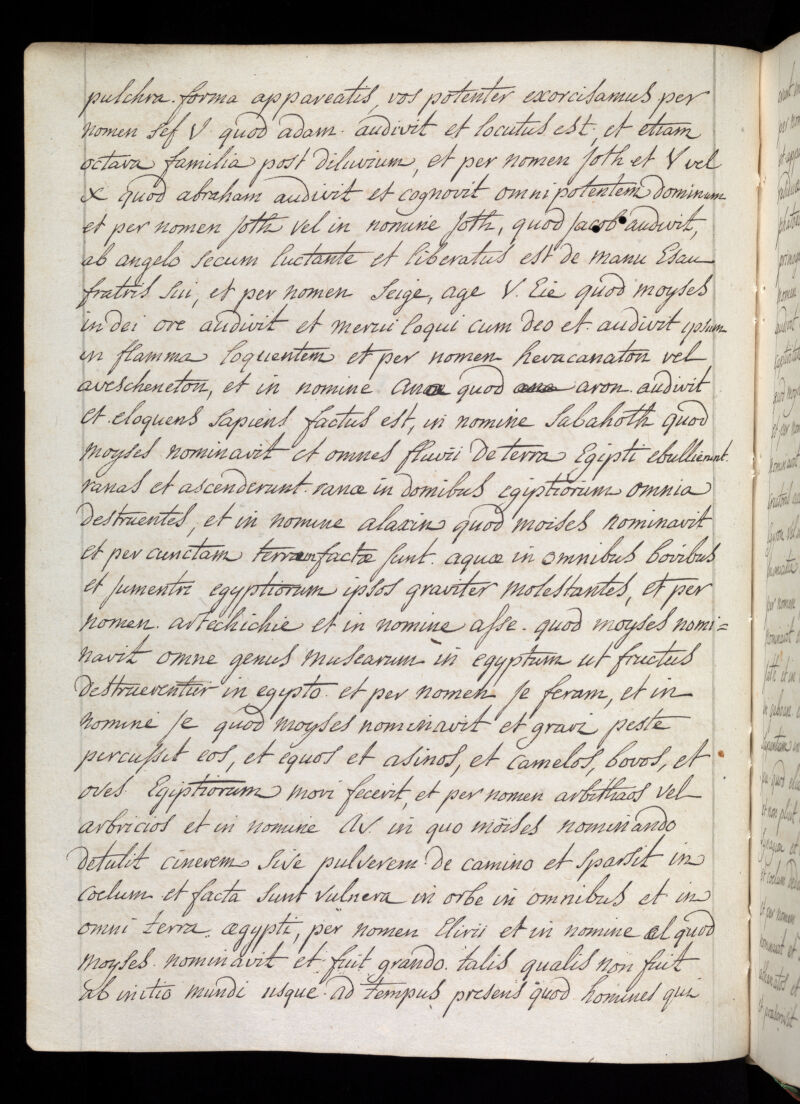 pulchra forma appareatis, vos potenter exorcisamus per
nomen sef V. quod adam audivit et locutus est, et etiam
octava familia post diluvium, et per nomen Joth et V vel
X quod abraham audivit et cognovit omnipotentem dominum
et per nomen Joth vel in nomine Joth, quod Jacob audivit,
ab angelo secum luctante et liberatus est de manu Esau
fratris sui, et per nomen Seige, age V. Eie quod moyses
in dei ore audivit et merui loqui cum deo et audivit ipsum
in flamma loquentem et per nomen hevacanaton vel
avescheneton, et in nomine quod aron audivit
et eloquens sapiens factus est, in nomine Sabahoth quod
moyses nominavit et omnes fluvii de terra Egipti ebullierunt
ranas et ascenderunt ranæ in domibus egiptiorum omnia
destruentes, et in nomine alaxin quod moises nominavit
et per cunctam terram factæ sunt aquæ in omnibus bovibus
et jumentri egyptiorum ipsos graviter molestantes, et per
nomen artechichie et in nomine afse quod moyses nomi=
navit omne genus musearum in egyptum ut fructus
destrueventur in egypto et per nomen Je feram, et in
nomine Je quod moyses nominavit et gravi peste
percussit eos, et equos et asinos, et camelos, bovos, et
oves Egiptiorum mori fecerit, et per nomen arbithaos vel
arbricios et in nomine AV in quo möises nominando
detulit cinerem sive pulverem de camino et sparsit in
coelum et facta sunt vulnera in orbe in omnibus et in
omni terra ægypti, per nomen Elirii et in nomine æl quod
moyses nominavit et fuit grando talis qualis non fuit
ab initio mundi usque ad tempus presens quod homines qui